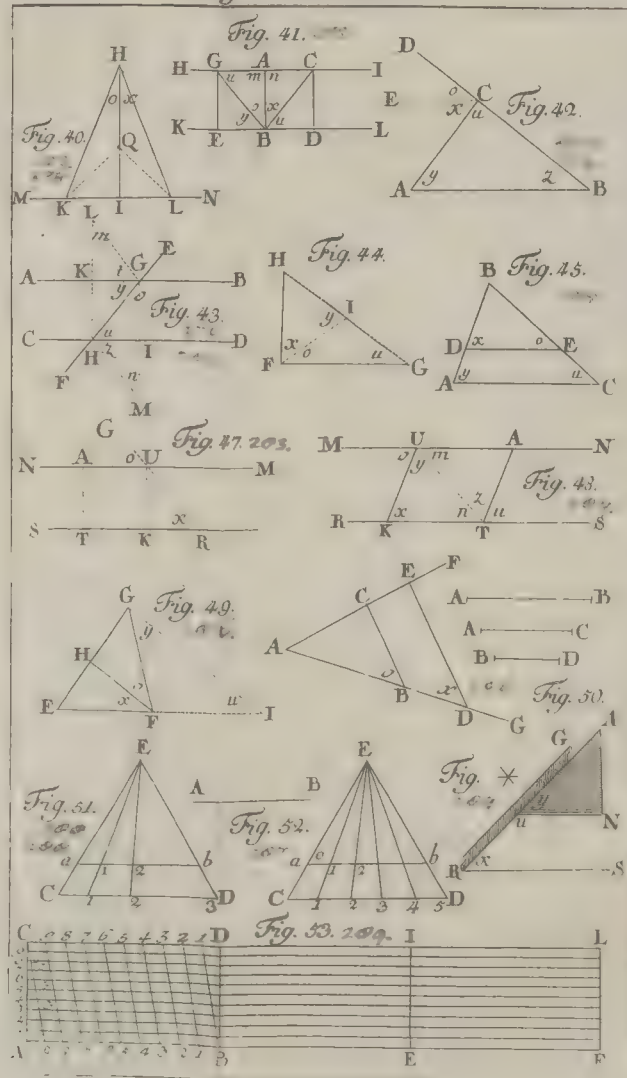 Fig. 41.
H G A C I
u m n
o x
y u
K E B D L
H
o x
Fig. 40.
Q
M K I L N
D
E
o C
x u
Fig. 42.
A y z B
L
m
E
G
A K i B
y o
Fig. 43.
C u D
H z I
F n
M
H
Fig. 44.
I
y
x
F o u G
B
Fig. 45.
D x o E
A y u C
G
Fig. 47. 203.
N A o U M
x
S T K R
M U A N
o y m
Fig. 48.
z
R K x n T u S
G
Fig. 49.
y
H
o
E x F u I
E F
C
A
o
B x
D
G
A B
A C
B D
Fig. 50.
E
Fig. 51.
a 1 2 b
C 1 2 3 D
A B
Fig. 52.
E
a o 1 2 b
C 1 2 3 4 5 D
Fig. *
A
G
y
u N
R x S
C 9 8 7 6 5 4 3 2 1 D Fig. 53. 209. I L
A 4 3 2 1 E